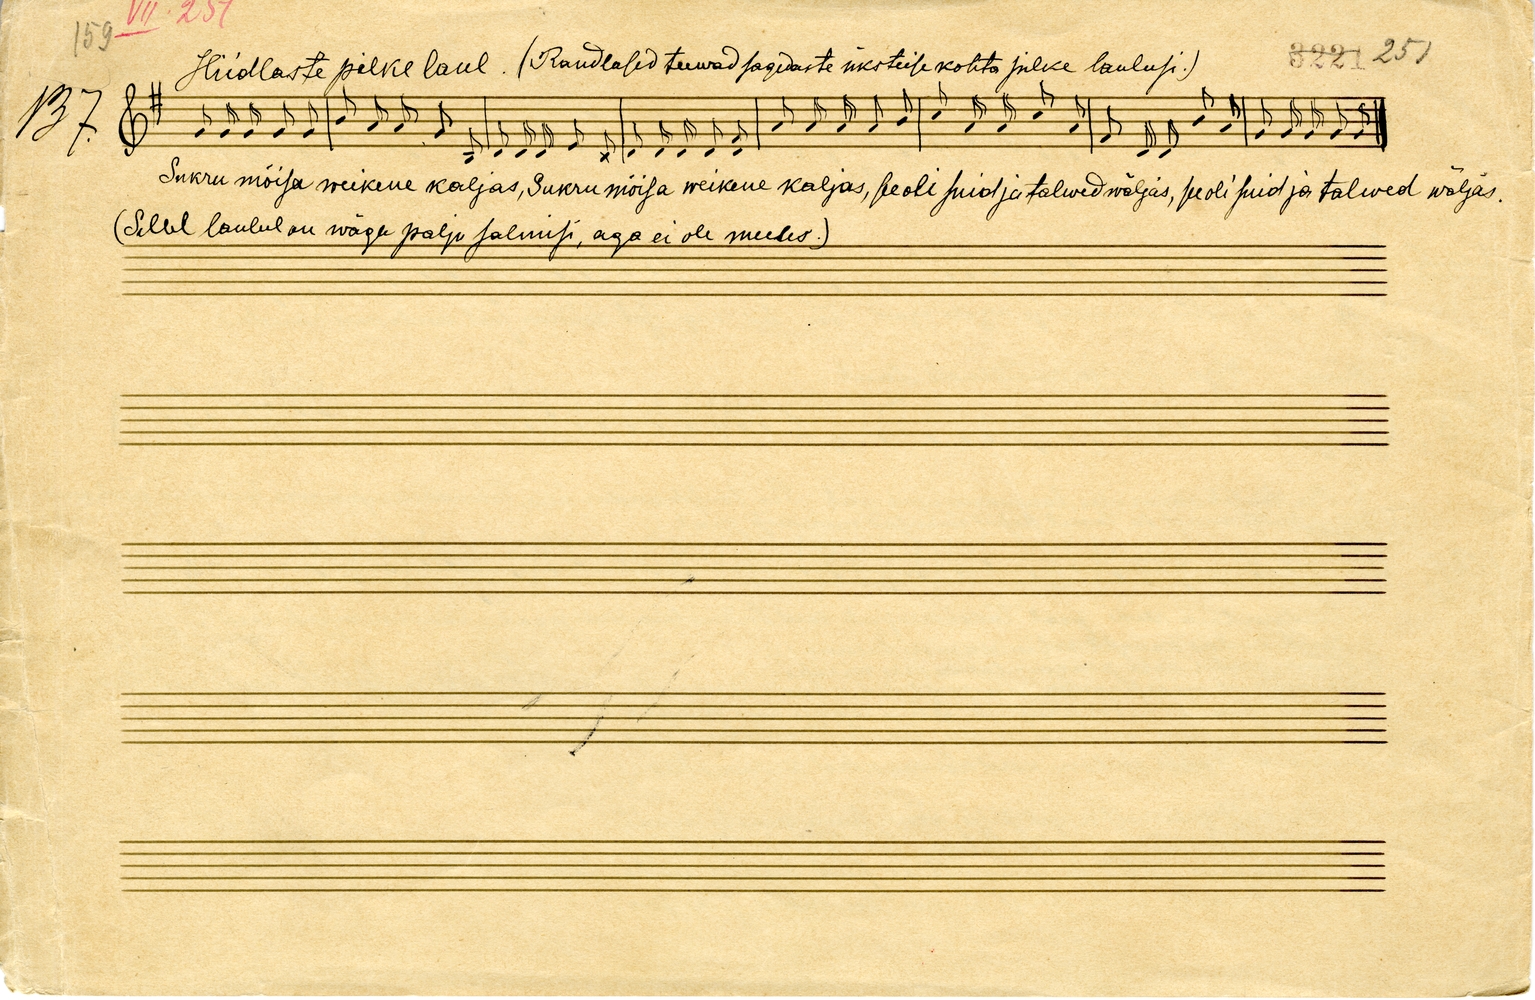 159 VII. 251
Hiidlaste pilke laul. (Randlased teewad sagedaste üksteise kohta pilke laulusi.) 3221 251
137.
Sukru mõisa weikene kaljas, Sukru mõisa weikene kaljas, se oli suid ja talwed wäljas, se oli suid ja talwed wäljas.
(Sellel laulul on wäga palju salmisi, aga ei ole meeles.)